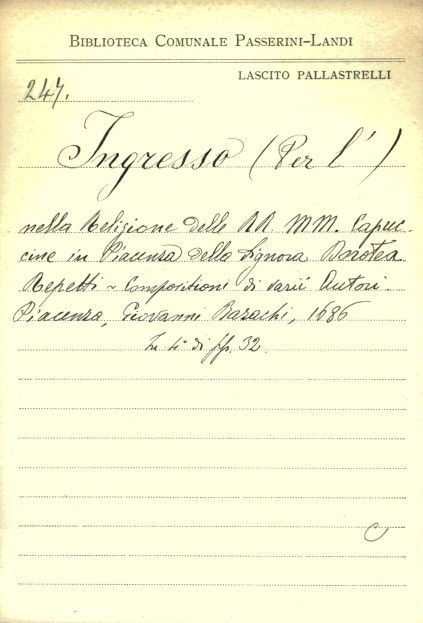 BIBLIOTECA COMUNALE PASSERINI-LANDI
LASCITO PALLASTRELLI
247.
Ingresso (Per l')
nella Religione delle RR. MM. Capuc-
cine in Piacenza della Signora Dorotea
Repetti ~ Compositioni di varii Autori.
Piacenza, Giovanni Bazachi, 1686
In 4° di pp. 32.